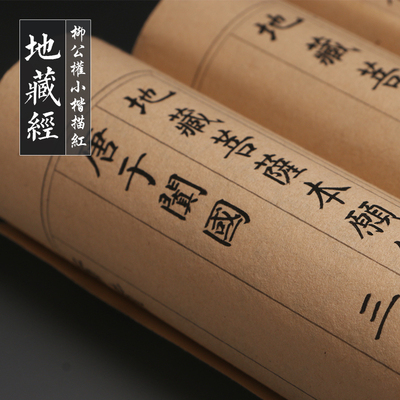 柳公權小楷描紅
地藏經
地藏菩薩本願
三
唐于闐國
地藏菩